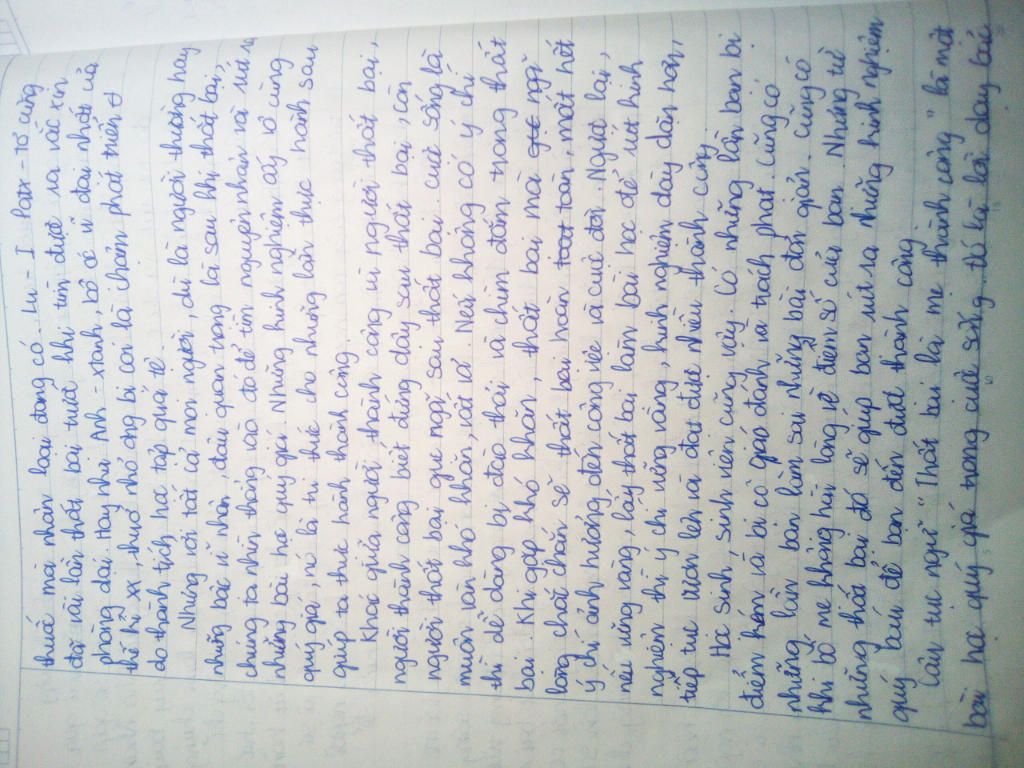 thuốc mà nhân loại đang có. Lu - I Pax - tơ cũng
đã vài lần thất bại trước khi tìm được ra vắc xin
phòng dại. Hay như Anh - xtanh, bộ óc vĩ đại nhất của
thế kỉ XX, thuở nhỏ ông bị coi là chậm phát triển
do thành tích học tập quá tệ.
Nhưng với tất cả mọi người, dù là người thường hay
những bậc vĩ nhân, đâu quan trọng là sau khi thất bại,
chúng ta nhìn thẳng vào đó để tìm nguyên nhân và rút ra
những bài học quý giá. Những kinh nghiệm ấy vô cùng
quý giá, nó là tri thức cho những lần thực hành sau
giúp ta thực hành thành công.
Khác giữa người thành công với người thất bại,
người thành công biết đứng dậy sau thất bại, còn
người thất bại gục ngã sau thất bại. Cuộc sống là
muôn vàn khó khăn, vất vả. Nếu không có ý chí
thì dễ dàng bị đào thải và chìm đắm trong thất
bại. Khi gặp khó khăn, thất bại mà gục ngã
lòng chắc chắn sẽ thất bại hoàn toàn, mất hết
ý chí, ảnh hưởng đến công việc và cuộc đời. Ngược lại,
nếu vững vàng, lấy thất bại làm bài học để rút kinh
nghiệm thì ý chí vững vàng, kinh nghiệm dày dặn hơn,
tiếp tục vươn lên và đạt được nhiều thành công.
Học sinh, sinh viên cũng vậy. Có những lần bạn bị
điểm kém và bị cô giáo đánh và trách phạt. Cũng có
những lần bạn làm sai những bài đơn giản. Cũng có
khi bố mẹ không hài lòng về điểm số của bạn. Nhưng từ
những thất bại đó sẽ giúp bạn rút ra những kinh nghiệm
quý báu để bạn đến được thành công.
Câu tục ngữ "Thất bại là mẹ thành công" là một
bài học quý giá trong cuộc sống. Đó là lời dạy bảo